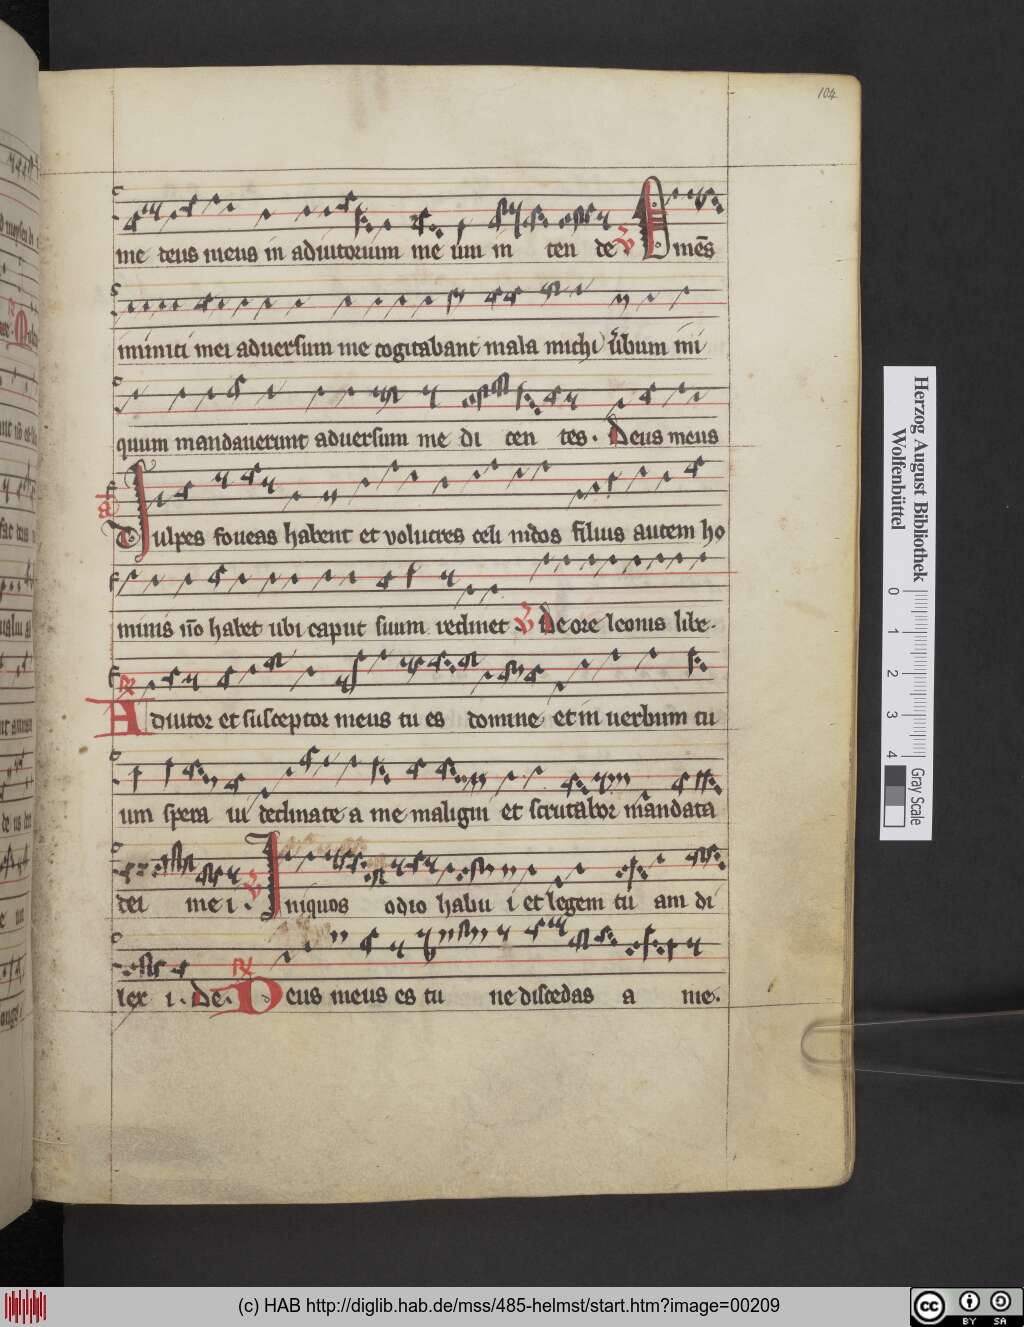 104
me deus meus in adiutorium me um in ten de ℣ Om̄es
inimici mei adversum me cogitabant mala michi v̓bum ini
quum mandaverunt adversum me di cen tes. Deus meus
a
D. Vulpes foveas habent et volucres celi nidos filius autem ho
minis nō habet ubi caput suum reclinet. ℣ De ore leonis libe.
℟
Adiutor et susceptor meus tu es domine et in verbum tu
um spera vi declinate a me maligni et scrutabor mandata
dei me i. ℣ Iniquos odio habu i et legem tu am di
lex i. De. ℟ Deus meus es tu ne discedas a me.
Herzog August Bibliothek
Wolfenbüttel
0 1 2 3 4
Gray Scale
(c) HAB http://diglib.hab.de/mss/485-helmst/start.htm?image=00209
cc BY SA